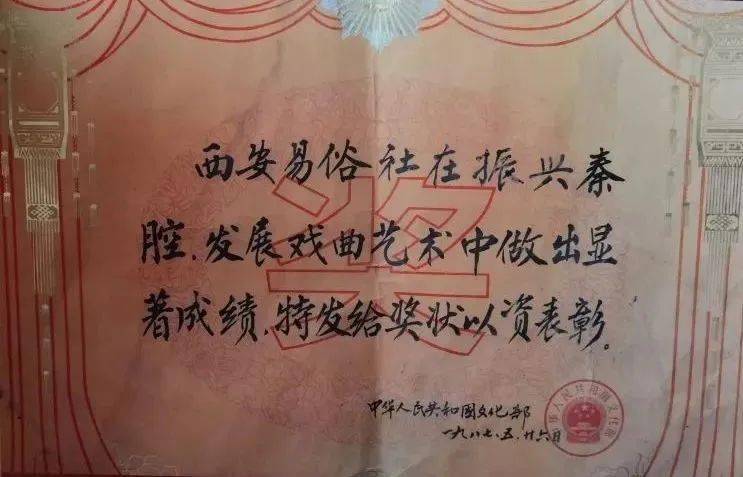 西安易俗社在振兴秦
腔、发展戏曲艺术中做出显
著成绩,特发给奖状以资表彰。
奖
中华人民共和国文化部
一九八七.五.廿六日
中华人民共和国文化部